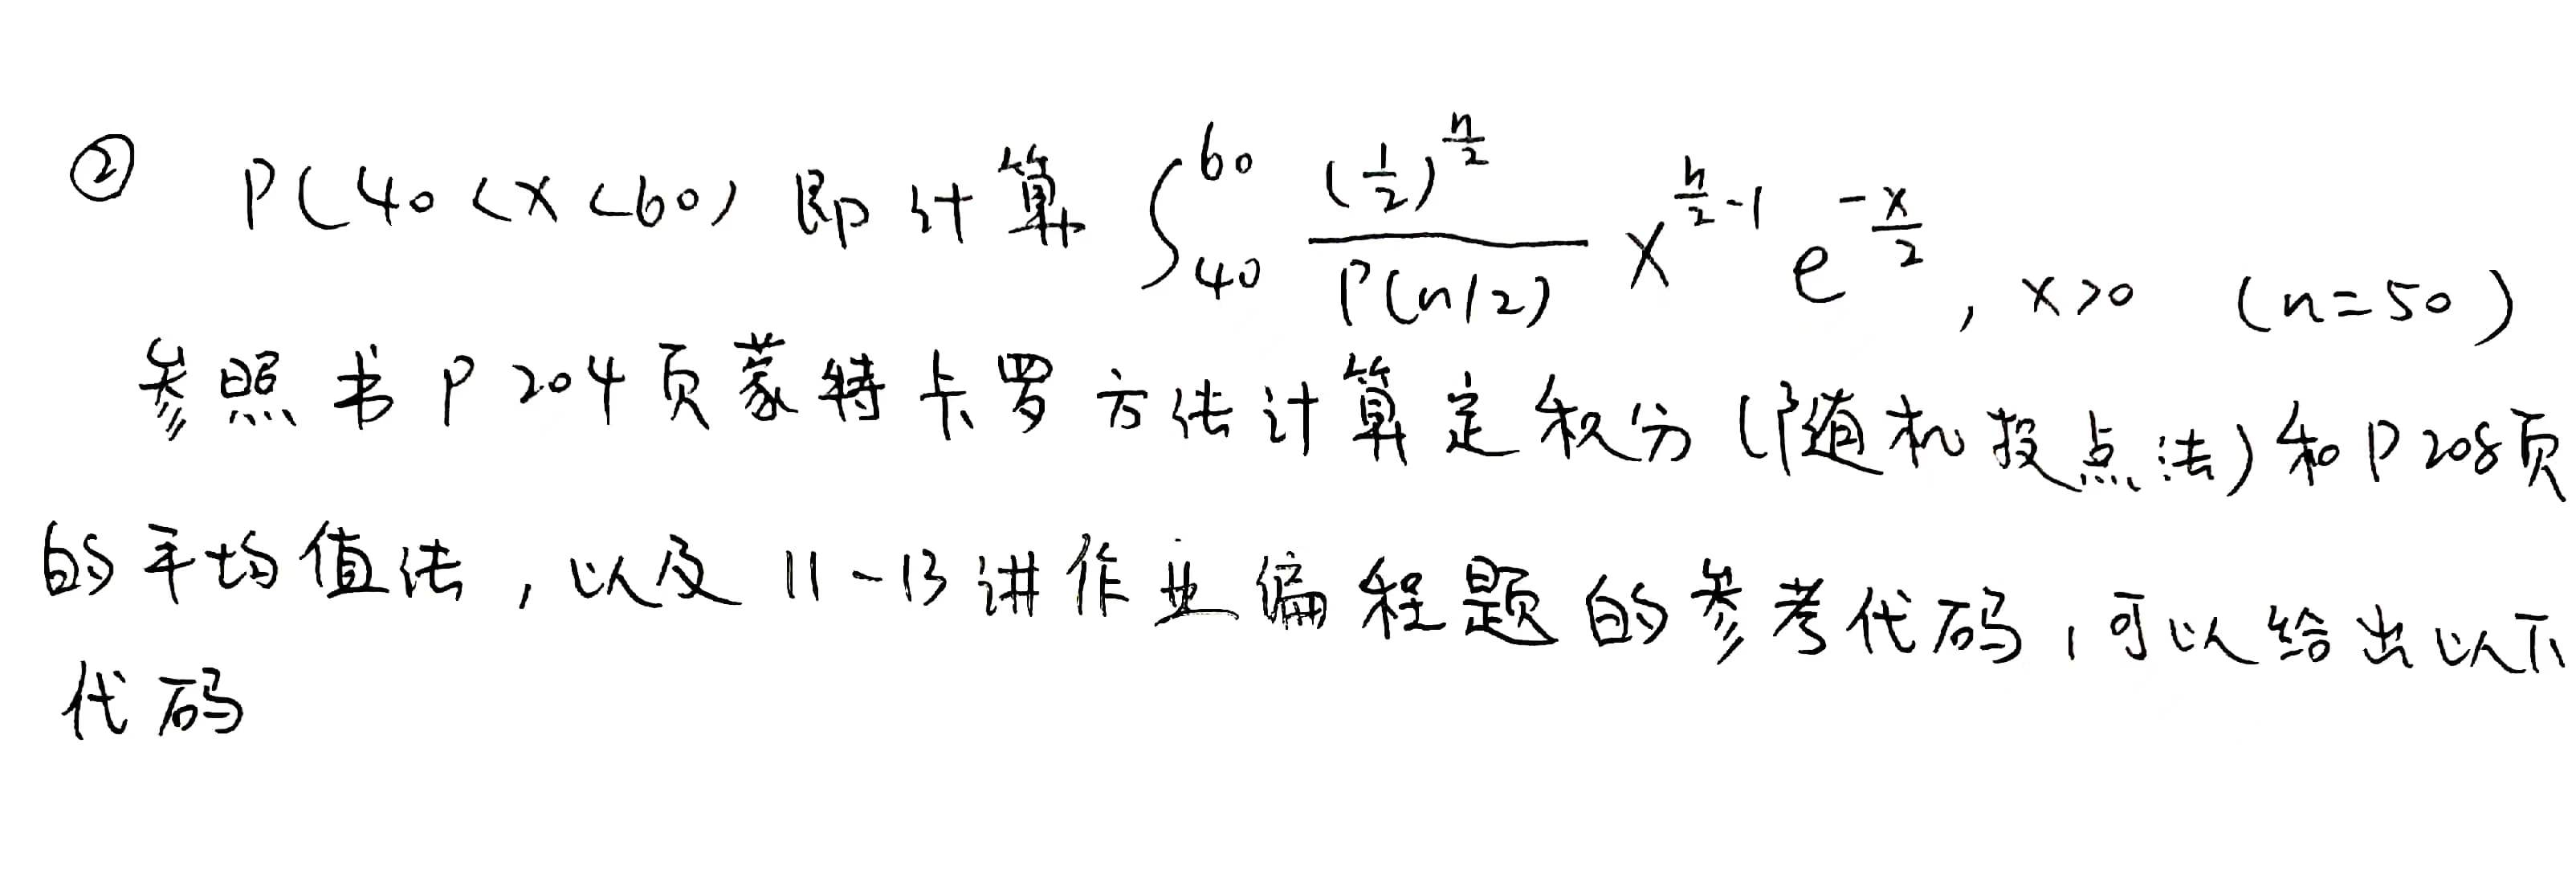 ② P(40<x<60) 即计算 ∫₄₀⁶⁰ \frac{(\frac{1}{2})^{\frac{n}{2}}}{Γ(n/2)} x^{\frac{n}{2}-1} e^{-\frac{x}{2}}, x>0 (n=50)
参照书P204页蒙特卡罗方法计算定积分(随机投点法)和P208页
的平均值法,以及11-13讲作业编程题的参考代码,可以给出以下
代码